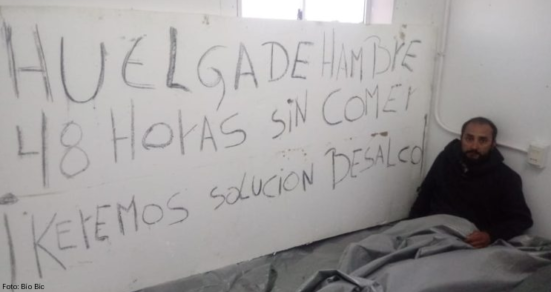 HUELGA DE HAMBRE
48 HORAS SIN COMER
KEREMOS SOLUCION DESALCO
Foto: Bio Bic